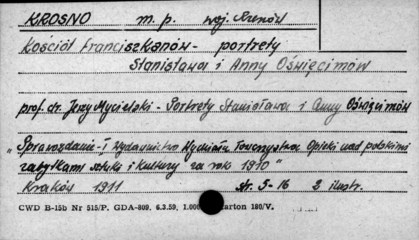 KROSNO m. p. woj. Rzeszów
Kościół Franciszkanów - portrety
Stanisława i Anny Oświęcimów
prof. dr. Jerzy Mycielski - Portrety Stanisława i Anny Oświęcimów
"Sprawozdanie i Wydawnictwo Wydziału Towarzystwa Opieki nad polskimi
zabytkami sztuki i kultury za rok 1910"
Kraków 1911 str. 5-16 2 ilustr.
CWD B-15b Nr 515/P. GDA-809. 6.3.59, 1.000 karton 180/V.